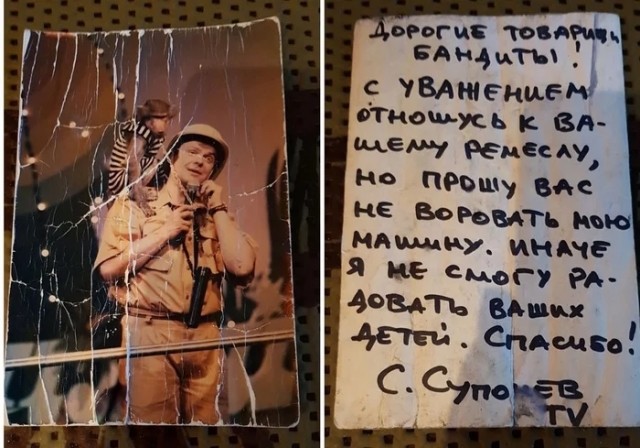 ДОРОГИЕ ТОВАРИЩИ
БАНДИТЫ!
С УВАЖЕНИЕМ
ОТНОШУСЬ К ВА-
ШЕМУ РЕМЕСЛУ,
НО ПРОШУ ВАС
НЕ ВОРОВАТЬ МОЮ
МАШИНУ. ИНАЧЕ
Я НЕ СМОГУ РА-
ДОВАТЬ ВАШИХ
ДЕТЕЙ. СПАСИБО!
С. Супонев
TV